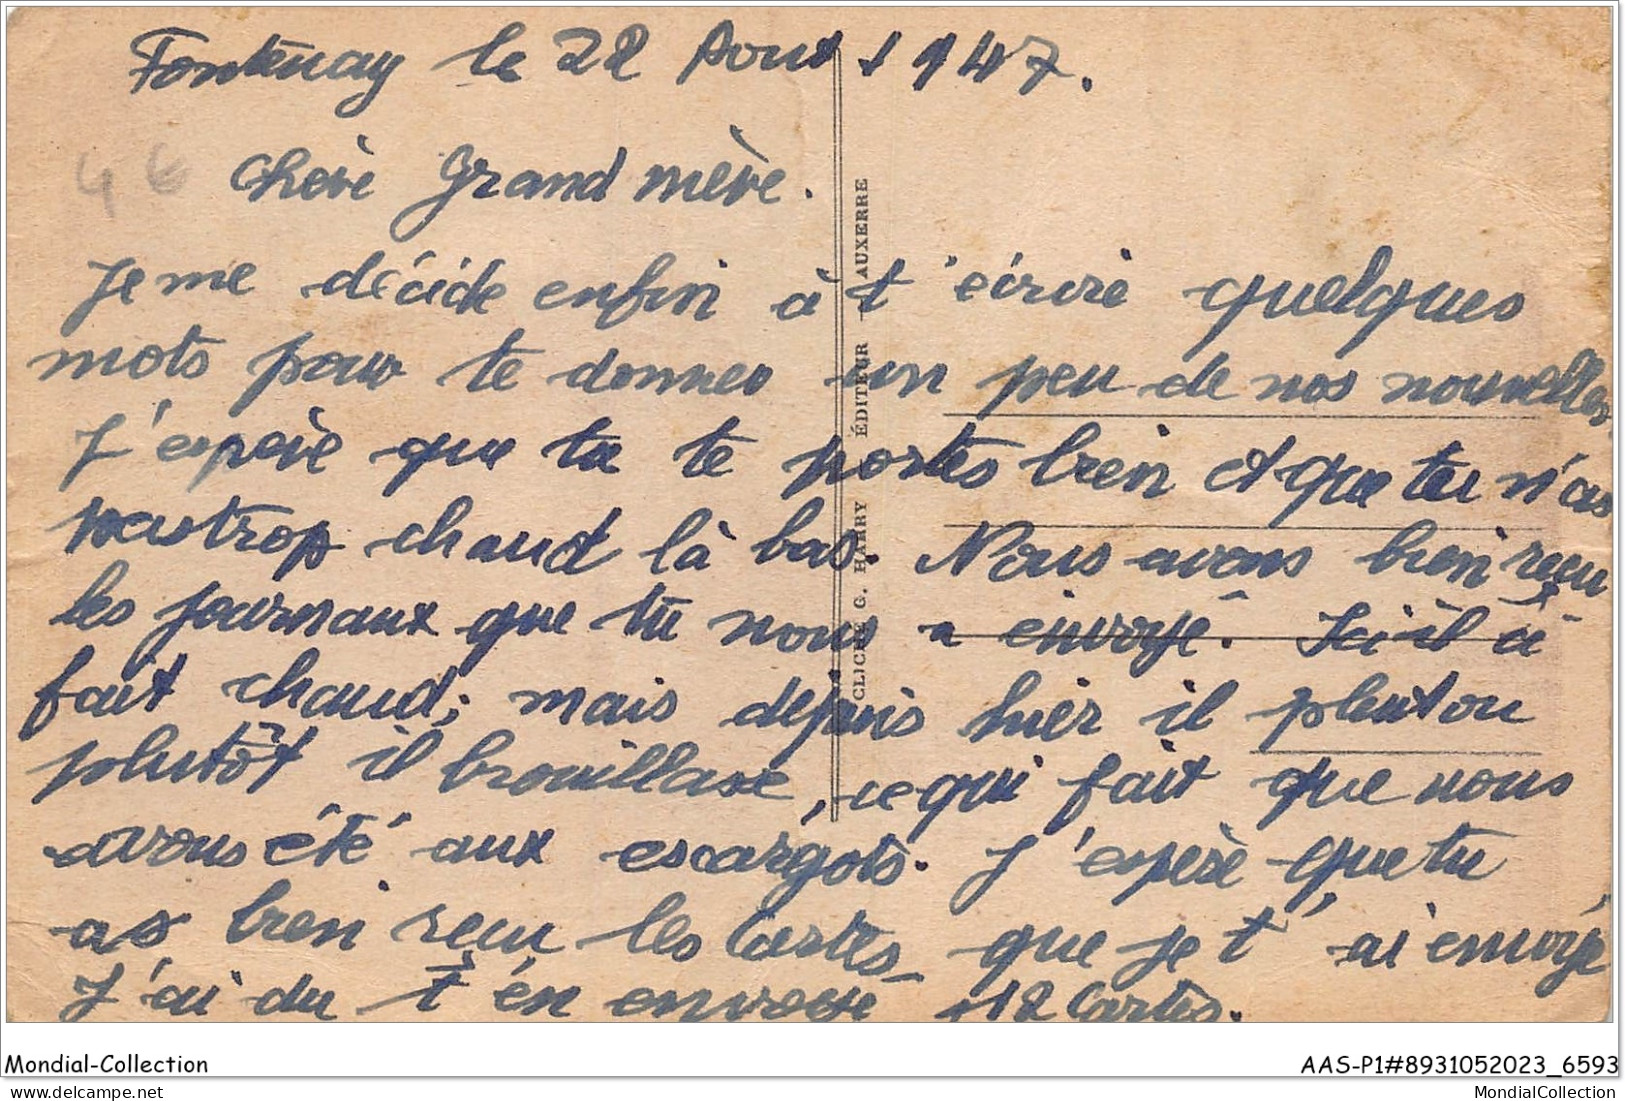 Fontenay le 22 Aout 1947.
4 €
Chère Grand mère.
Je me décide enfin à t'écrire quelques
mots pour te donner un peu de nos nouvelles.
J'espère que tu te portes bien et que tu n'as
pas trop chaud là bas. Nous avons bien reçu
les journaux que tu nous a envoyé. Ici il a
fait chaud; mais depuis hier il pleut ou
plutôt il brouillase, ce qui fait que nous
avons été aux escargots. J'espère que tu
as bien reçu les Cartes que je t'ai envoyé
J'ai du t'en envoyé 12 Cartes.
CLICHÉ G. HARRY ÉDITEUR - AUXERRE
Mondial-Collection
AAS-P1#8931052023_6593
delcampe.net
MondialCollection